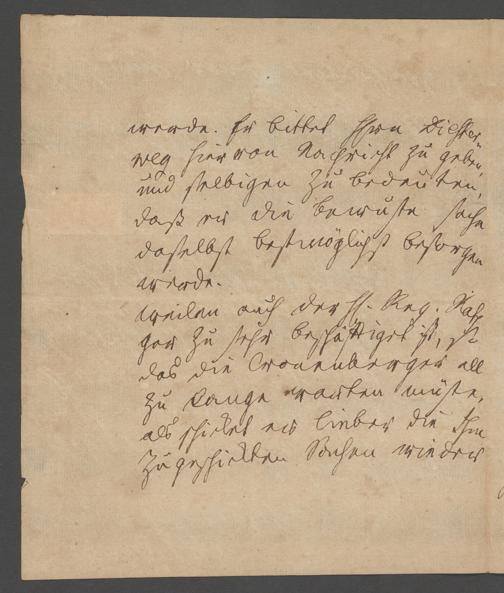 werde. Er bittet Ihm Diester-
weg hiervon Nachricht zu geben,
und selbigen zu bedeuten,
daß er die bewuste sache
daselbst bestmöglichst besorgen
werde.
Weilen auch der H. Reg.
zu sehr beschäftiget ist,
das die Cronenberger all
zu lange warten müste,
als schicket er lieber die Ihm
zugeschickten Sachen wieder